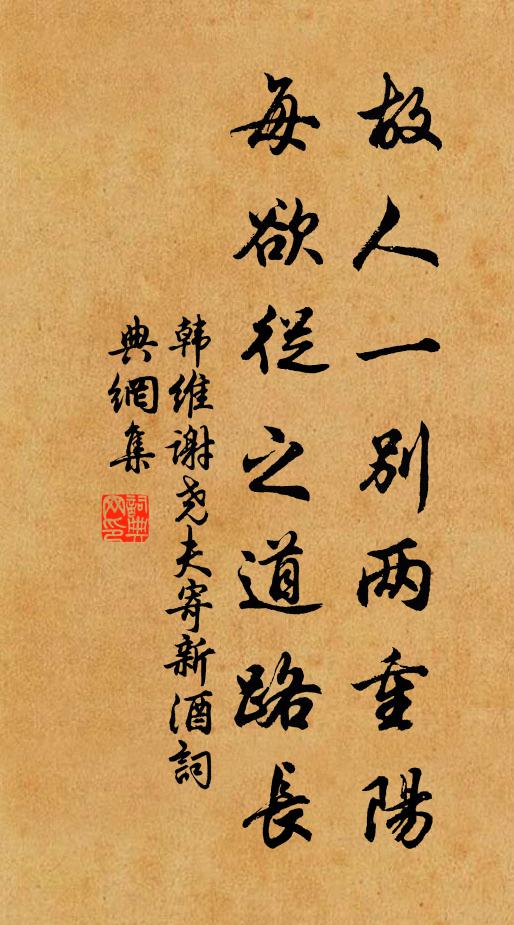 故人一别两重陽
每欲從之道路長
韩维谢尧夫寄新酒詞
典網集
詞典
网印